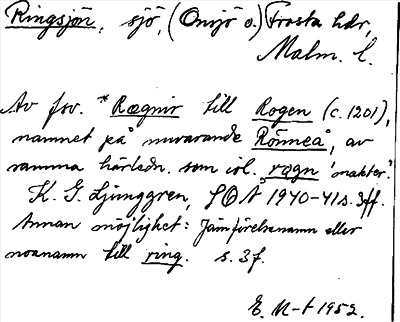 Ringsjön, sjö, (Onsjö o.) Frosta hdr,
Malm. l.
Av fsv. *Rægnir till Rogen (c. 1201),
namnet på nuvarande Rönneå, av
samma härledn. som isl. rǫgn 'makter'.
K. G. Ljunggren, SOÅ 1940-41 s. 3 ff.
Annan möjlighet: Jämförelsenamn eller
noanamn till ring. s. 3 f.
E. N-t 1952.